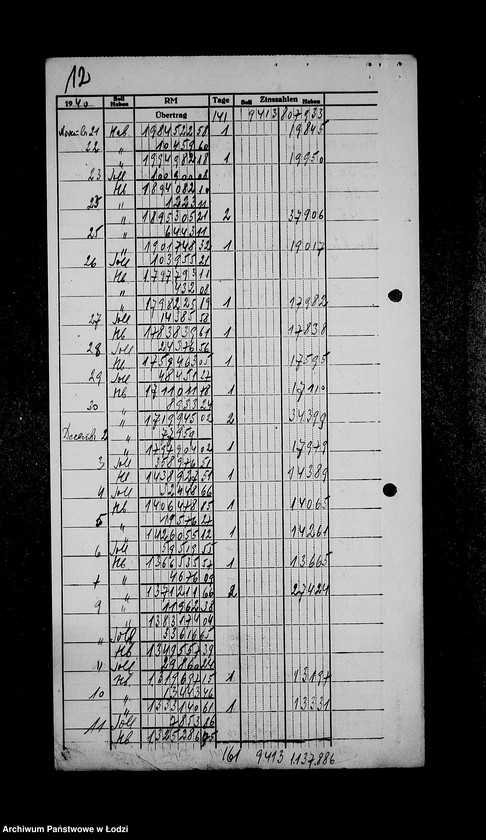 12
1940 Soll Haben RM Tage Soll Zinszahlen Haben
Übertrag 141 9413 807933
21 Hab 1984522 58 1 19845
22 " 10459 60
" 1994982 18 1 19950
23 Soll 100900 08
Hb 1894082 10
" 1223 11
" 1895305 21 2 37906
25 " 6443 11
" 1901748 32 1 19017
26 Soll 103955 21
Hb 1797793 11
" 432 08
" 1798225 19 1 17982
27 Soll 14385 58
Hb 1783839 61 1 17838
28 Soll 24376 56
Hb 1759463 05 1 17595
29 Soll 48451 27
Hb 1711011 78 1 17110
30 " 8933 24
" 1719945 02 2 34399
" 1 17979
3 Soll
Hb 1438927 51 1 14389
4 Soll 32448 66
Hb 1406478 85 1 14065
5 " 19576 27
" 1426055 12 1 14261
6 Soll 59519 55
Hb 1366535 57 1 13665
7 " 4676 09
" 1371211 66 2 27424
9 " 11962 38
" 1383174 04
" Soll 33616 65
Hb 1349557 39
" Soll 29860 24
Hb 1319697 15 1 13197
10 " 13443 46
" 1333140 61 1 13331
11 Soll 7853 86
Hb 1325286 75
161 9413 1137.886
Archiwum Państwowe w Łodzi